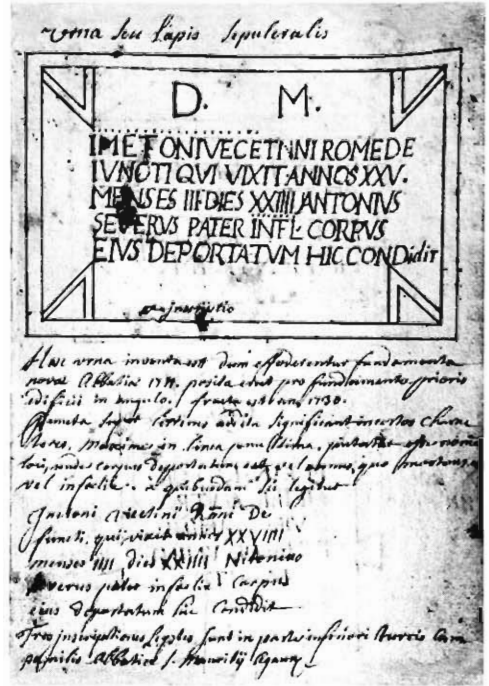 Urna seu Lapis sepulcralis
D. M.
IMETONIVECETINNI ROMEDE
IVNOTI QVI VIXIT ANNOS XXV.
MENSES IIII DIES XXIIII ANTONIVS
SEVERVS PATER INFL. CORPVS
EIVS DEPORTATVM HIC CONDidit
inscriptio
Haec urna inventa est dum effoderentur fundamenta
novae Abbatiae posita erat pro fundamento prioris
edificii in angulo / fracta est an. 1730.
Puncta super litteras addita significant incertos charac
teres, maxime in linea penultima,
lori, unde corpus deportatum vel quo
vel infaelix. a quibusdam sic legitur
Jnctoni Vecetinii De
functi, qui vixit annis XXVIIII
menses IIII, dies XXIIII
Severus pater infaelix Corpus
eius deportatum hic Condidit
Tres inscriptiones sunt in parte inferiori turris Cam
panilis Abbatiae S. Mauritij Agaun.